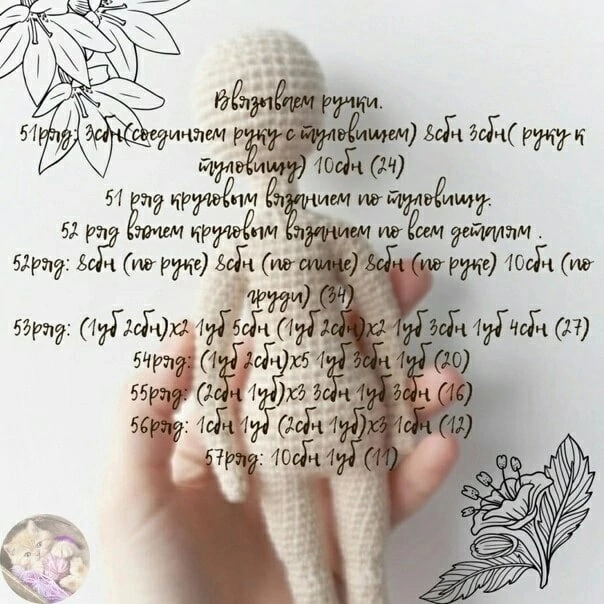 Ввязываем ручки.
51ряд: 3сбн(соединяем руку с туловищем) 8сбн 3сбн( руку к
туловищу) 10сбн (24)
51 ряд круговым вязанием по туловищу.
52 ряд вяжем круговым вязанием по всем деталям .
52ряд: 8сбн (по руке) 8сбн (по спине) 8сбн (по руке) 10сбн (по
груди) (34)
53ряд: (1уб 2сбн)х2 1уб 5сбн (1уб 2сбн)х2 1уб 3сбн 1уб 4сбн (27)
54ряд: (1уб 2сбн)х5 1уб 3сбн 1уб (20)
55ряд: (2сбн 1уб)х3 3сбн 1уб 3сбн (16)
56ряд: 1сбн 1уб (2сбн 1уб)х3 1сбн (12)
57ряд: 10сбн 1уб (11)